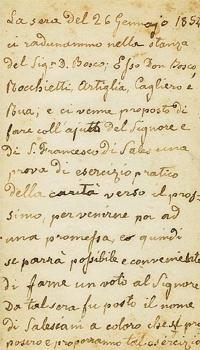 La sera del 26 Gennajo 1854
ci radunammo nella stanza
del Sig.r D. Bosco; Esso Don Bosco,
Rocchietti, Artiglia, Cagliero e
Rua; e ci venne proposto di
fare coll'ajuto del Signore e
di S. Francesco di Sales una
prova di esercizio pratico
della carità verso il pros-
simo, per venirne poi ad
una promessa, e quindi
se parrà possibile e conveniente
di farne un voto al Signore
Da tal sera fu posto il nome
di Salesiani a coloro che si pro-
posero e proporranno tal esercizio